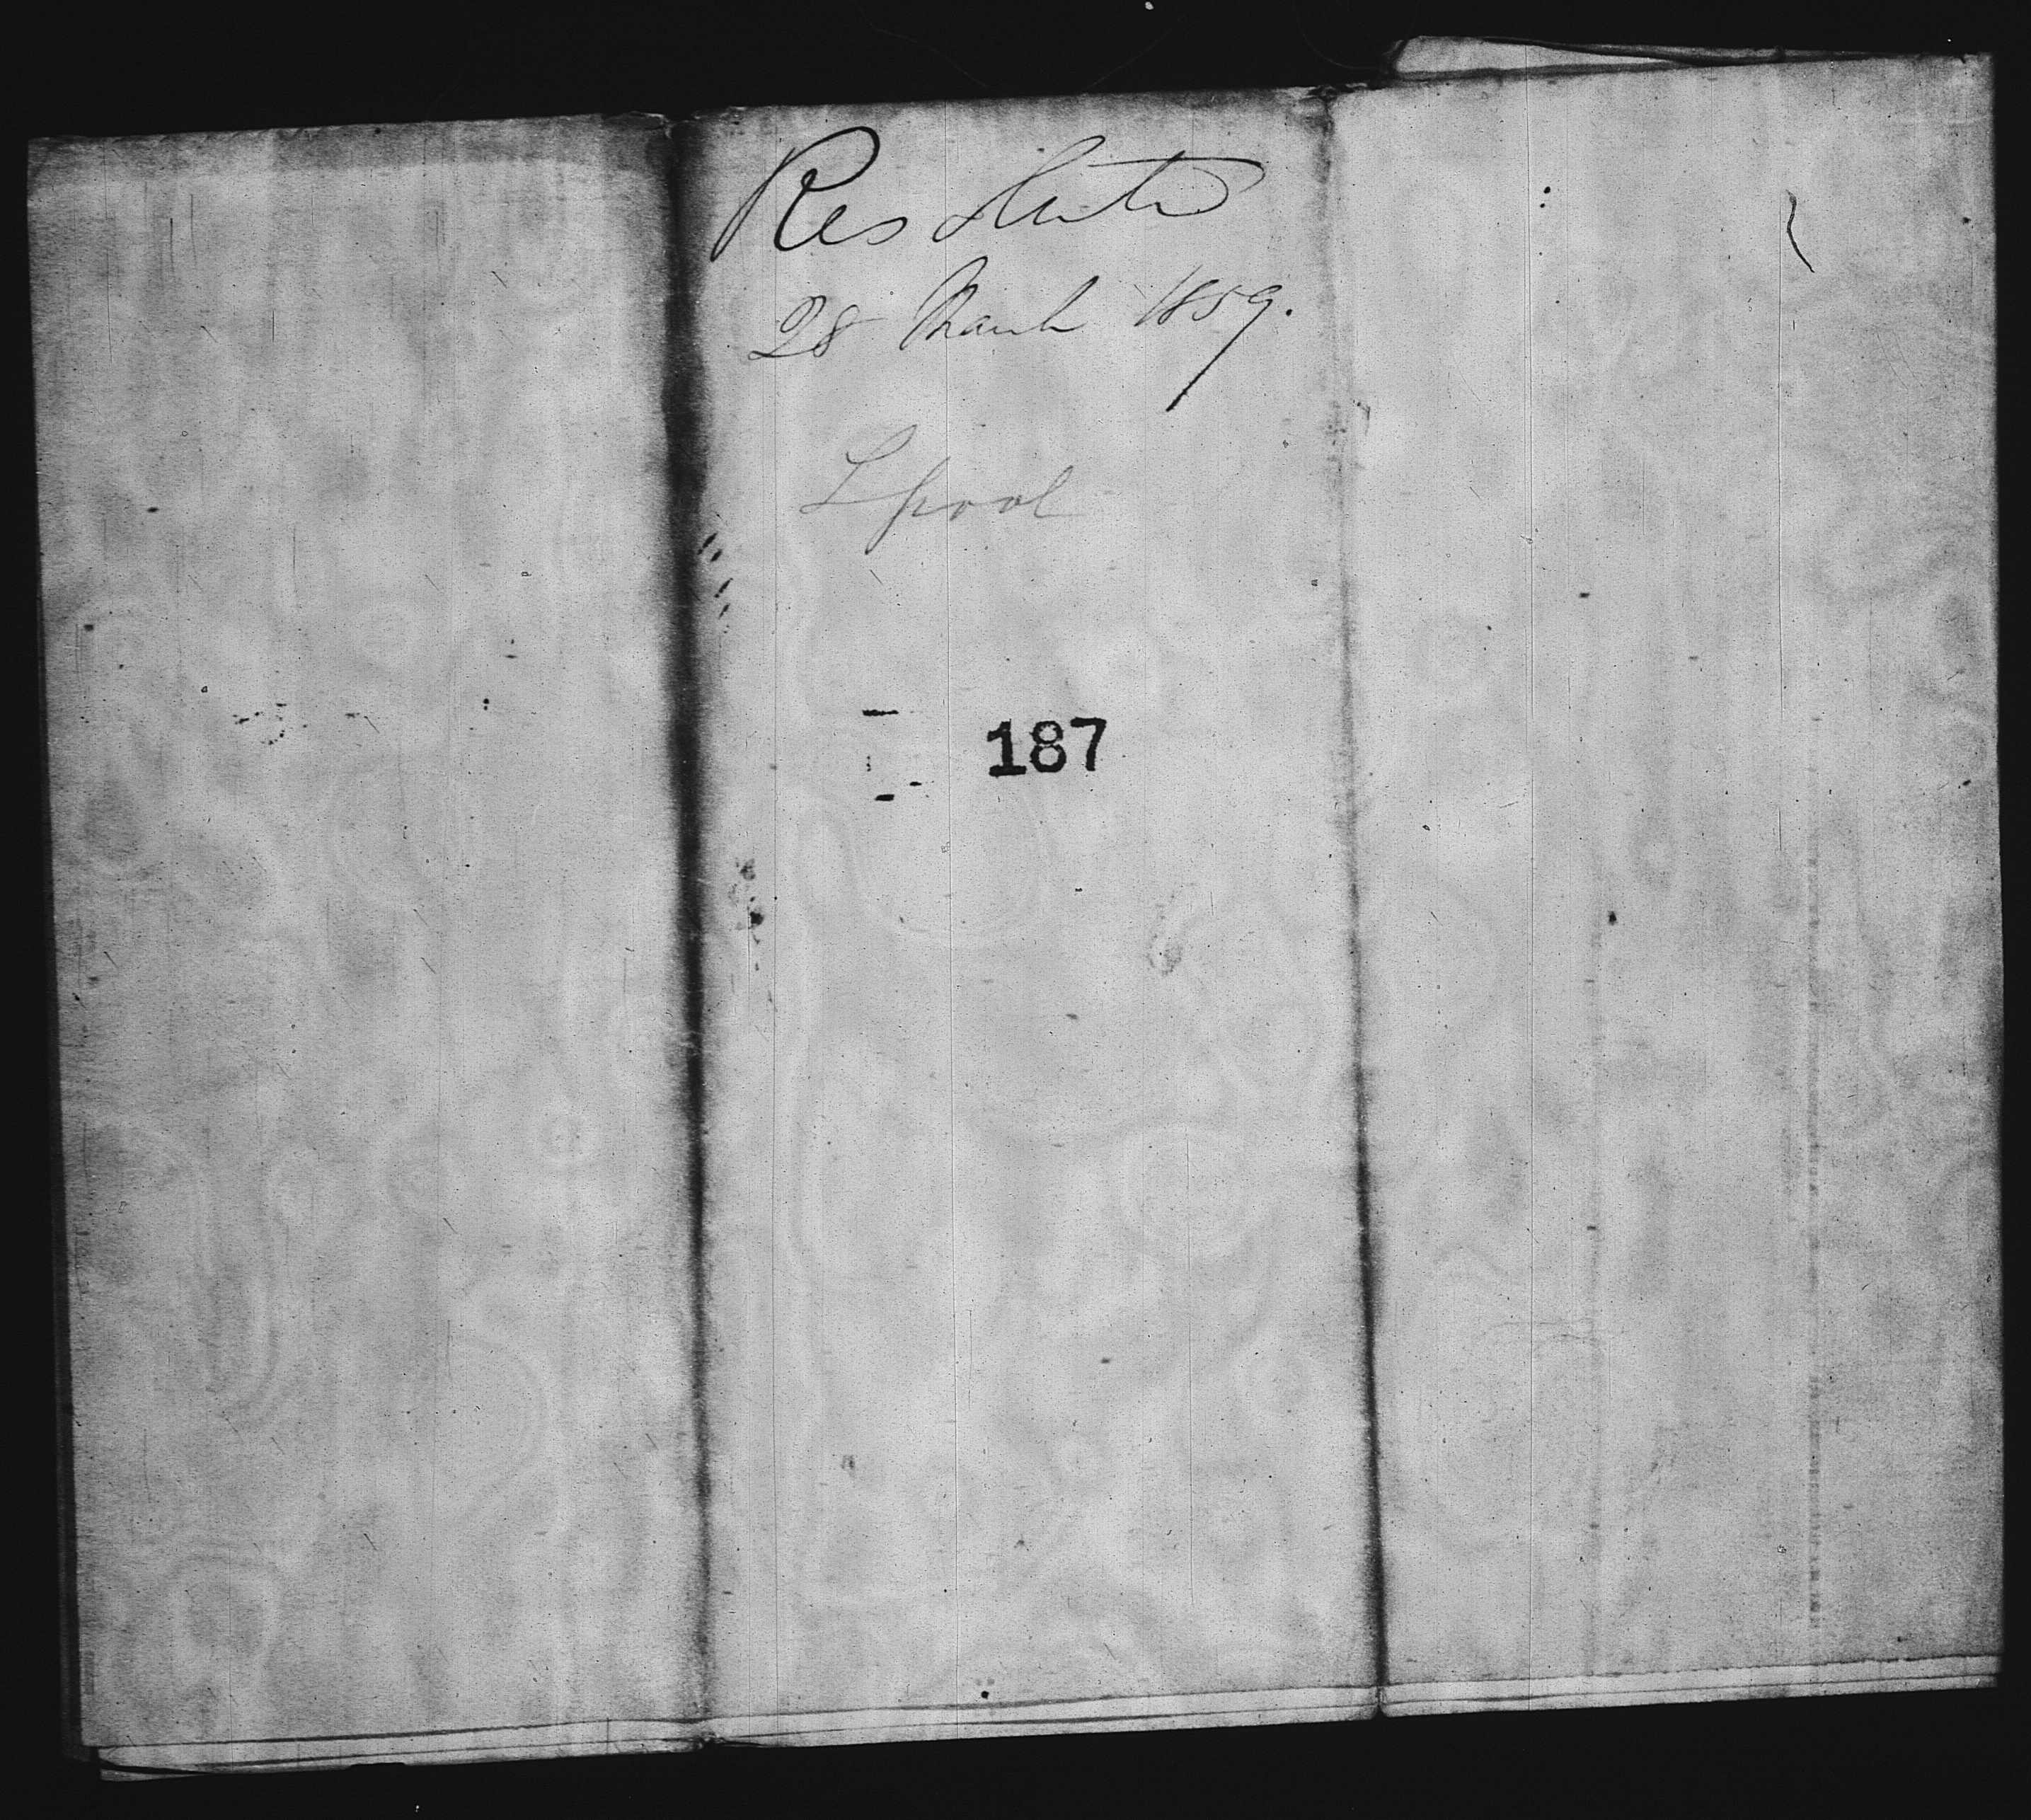 Resolute
28 March 1859.
Lpool
187